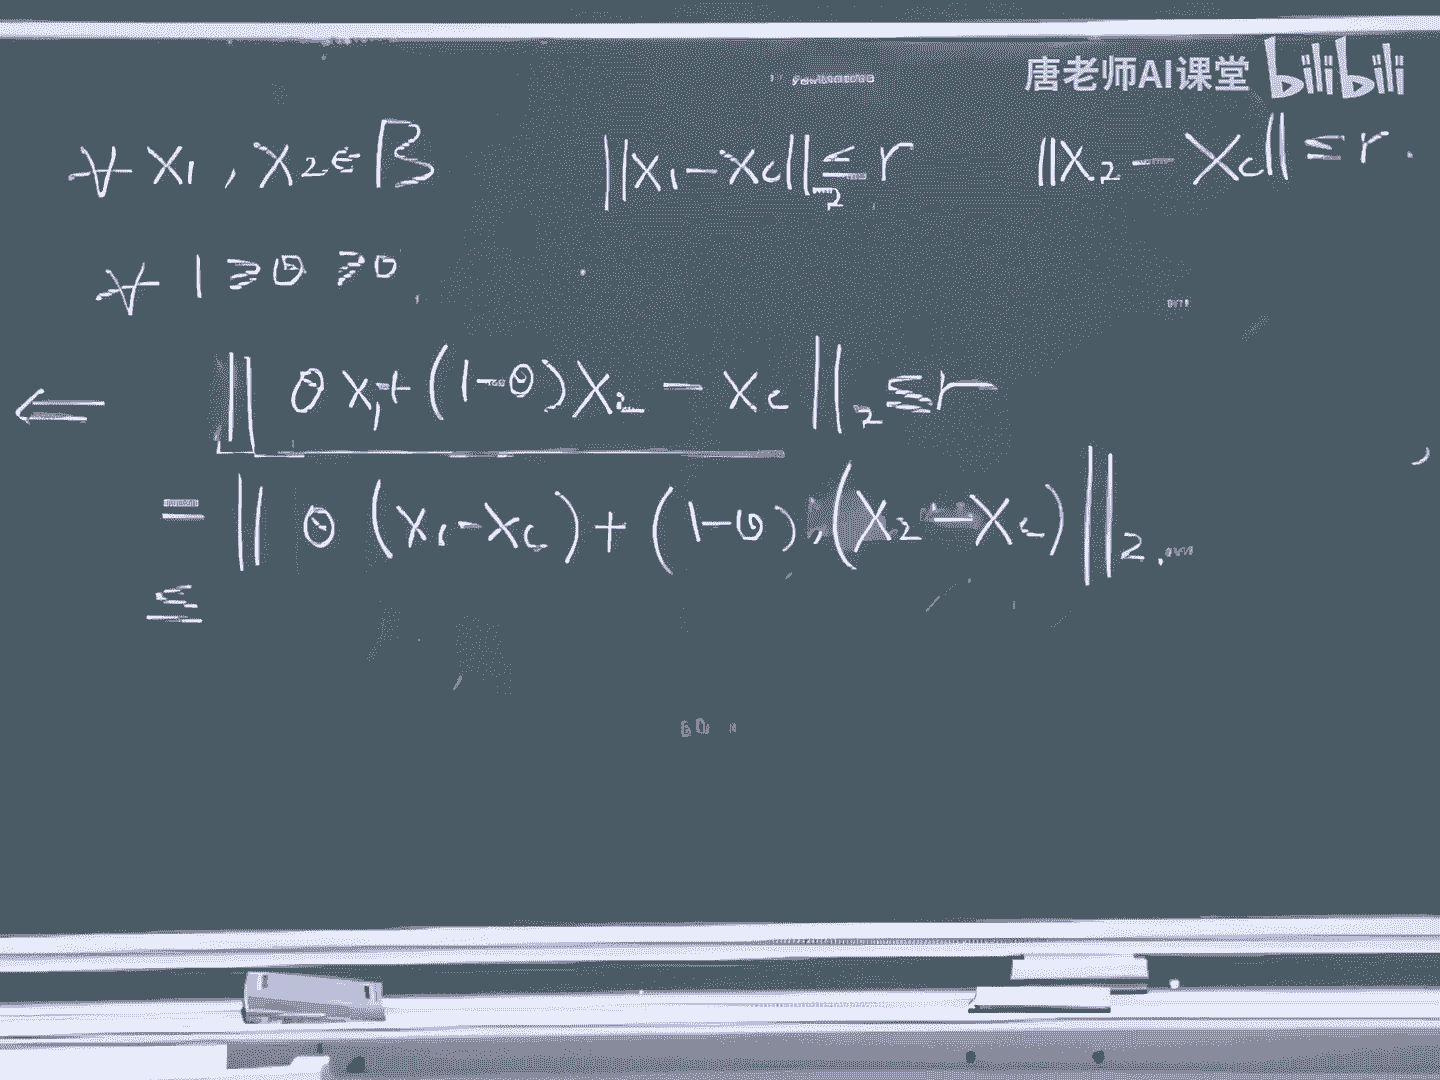 唐老师AI课堂 bilibili
∀ x₁, x₂ ∈ B  ||x₁ - x_c||₂ ≤ r  ||x₂ - x_c|| ≤ r.
∀ 1 ≥ θ ≥ 0
⇐ || θ x₁ + (1-θ) x₂ - x_c ||₂ ≤ r
= || θ (x₁ - x_c) + (1-θ) (x₂ - x_c) ||₂.
≤